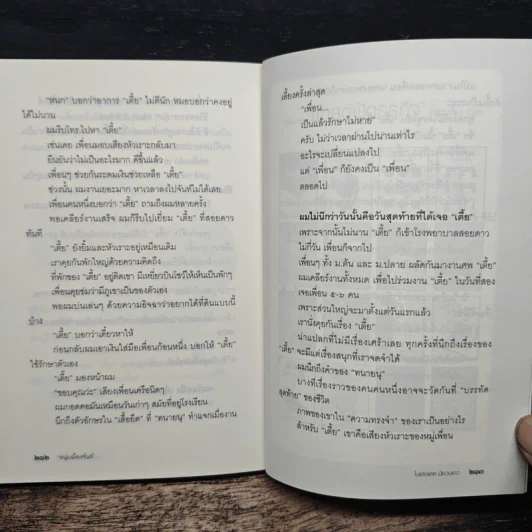 "หนก" บอกว่าอาการ "เตี้ย" ไม่ดีนัก หมอบอกว่าคงอยู่
ได้ไม่นาน
ผมรีบโทร.ไปหา "เตี้ย"
เช่นเคย เพื่อนมอบเสียงหัวเราะกลับมา
ยืนยันว่าไม่เป็นอะไรมาก ดีขึ้นแล้ว
เพื่อนๆ ช่วยกันระดมเงินช่วยเหลือ "เตี้ย"
ช่วงนั้น ผมงานเยอะมาก หาเวลาลงไปจันท์ไม่ได้เลย
เพื่อนคนหนึ่งบอกว่า "เตี้ย" ถามถึงผมหลายครั้ง
พอเคลียร์งานเสร็จ ผมก็รีบไปเยี่ยม "เตี้ย" ที่สอยดาว
ทันที
"เตี้ย" ยังยิ้มและหัวเราะอยู่เหมือนเดิม
เราคุยกันพักใหญ่ด้วยความคิดถึง
ที่พักของ "เตี้ย" อยู่ติดเขา มีเหยี่ยวบินโชว์ให้เห็นเป็นพักๆ
เพื่อนคุยข่มว่ามีภูเขาเป็นของตัวเอง
พอผมบ่นเล่นๆ ด้วยความอิจฉาว่าอยากได้ที่ดินแบบนี้
บ้าง
"เตี้ย" บอกว่าเดี๋ยวหาให้
ก่อนกลับผมเอาเงินใส่มือเพื่อนก้อนหนึ่ง บอกให้ "เตี้ย"
ใช้รักษาตัวเอง
"เตี้ย" มองหน้าผม
"ขอบคุณว่ะ" เสียงเพื่อนเครือนิดๆ
ผมกอดคอมันเหมือนวันเก่าๆ สมัยที่อยู่โรงเรียน
นึกถึงตัวอักษรใน "เสื้อยืด" ที่ "ทนายนู" ทำแจกเมื่องาน
๒๑๒ หนุ่มเมืองจันท์
เลี้ยงครั้งล่าสุด
"เพื่อน...
เป็นแล้วรักษาไม่หาย"
ครับ ไม่ว่าเวลาผ่านไปนานเท่าไร
อะไรจะเปลี่ยนแปลงไป
แต่ "เพื่อน" ก็ยังคงเป็น "เพื่อน"
ตลอดไป
ผมไม่นึกว่าวันนั้นคือวันสุดท้ายที่ได้เจอ "เตี้ย"
เพราะจากนั้นไม่นาน "เตี้ย" ก็เข้าโรงพยาบาลสอยดาว
ไม่กี่วัน เพื่อนก็จากไป
เพื่อนๆ ทั้ง ม.ต้น และ ม.ปลาย ผลัดกันมางานศพ "เตี้ย"
ผมเคลียร์งานทั้งหมด เพื่อไปร่วมงาน "เตี้ย" ในวันที่สอง
เจอเพื่อน ๕-๖ คน
เพราะส่วนใหญ่จะมาตั้งแต่วันแรกแล้ว
เรานั่งคุยกันเรื่อง "เตี้ย"
น่าแปลกที่ไม่มีเรื่องเศร้าเลย ทุกครั้งที่นึกถึงเรื่องของ
"เตี้ย" จะมีแต่เรื่องสนุกที่เราจดจำได้
ผมนึกถึงคำของ "ทนายนู"
บางทีเรื่องราวของคนคนหนึ่งอาจจะวัดกันที่ "บรรทัด
สุดท้าย" ของชีวิต
ภาพของเขาใน "ความทรงจำ" ของเราเป็นอย่างไร
สำหรับ "เตี้ย" เขาคือเสียงหัวเราะของหมู่เพื่อน
๒๑๓